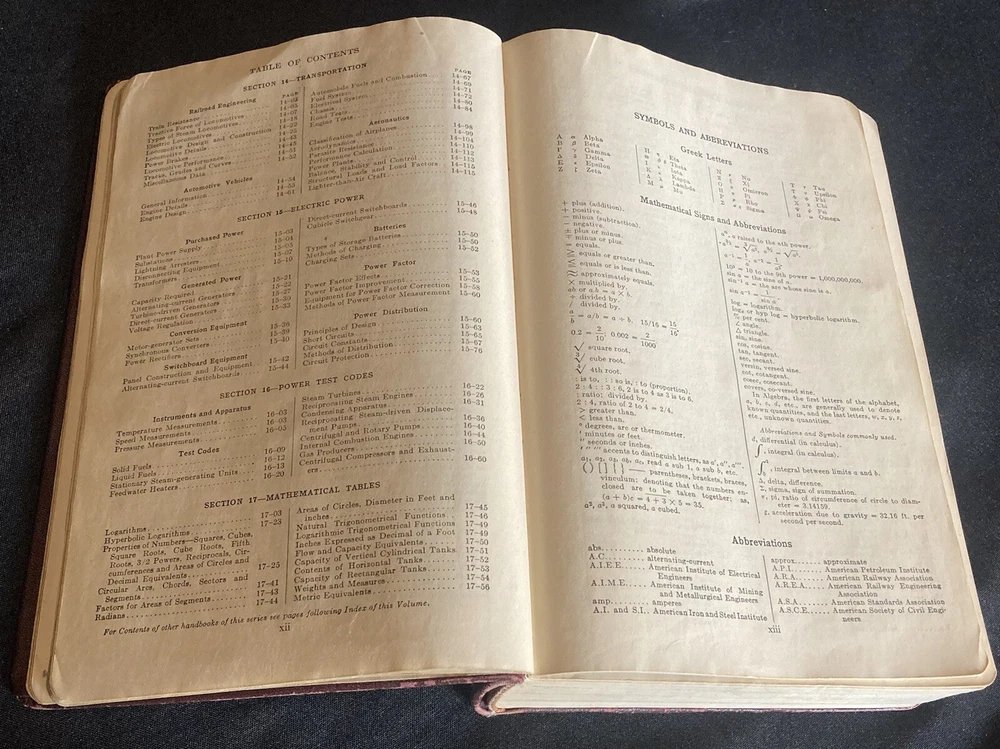 TABLE OF CONTENTS
SECTION 14—TRANSPORTATION
Railroad Engineering
PAGE
Train Resistance
Tractive Force of Locomotives
Types of Steam Locomotives
Electric Locomotives
Locomotive Design and Construction
Locomotive Details
Power Brakes
Locomotive Performance
Tracks, Grades and Curves
Miscellaneous Data
Automotive Vehicles
General Information 14-54
Engine Details 14-55
Engine Design 14-61
PAGE
Automobile Fuels and Combustion 14-67
Fuel System 14-69
Electrical System 14-71
Chassis 14-72
Road Tests 14-80
Engine Tests 14-84
Aeronautics
Classification of Airplanes 14-98
Aerodynamics 14-99
Parasite Resistance 14-104
Performance Calculation 14-110
Power Plants 14-112
Balance, Stability and Control 14-113
Structural Loads and Load Factors 14-115
Lighter-than-Air Craft 14-115
SECTION 15—ELECTRIC POWER
Purchased Power
Plant Power Supply 15-03
Substations 15-04
Lightning Arresters 15-05
Disconnecting Equipment 15-07
Transformers 15-10
Generated Power
Capacity Required 15-21
Alternating-current Generators 15-22
Turbine-driven Generators 15-27
Direct-current Generators 15-29
Voltage Regulation 15-33
Conversion Equipment
Motor-generator Sets 15-36
Synchronous Converters 15-39
Power Rectifiers 15-40
Switchboard Equipment
Panel Construction and Equipment 15-42
Alternating-current Switchboards 15-44
Direct-current Switchboards 15-46
Cubicle Switchgear 15-48
Batteries
Types of Storage Batteries 15-50
Methods of Charging 15-50
Charging Sets 15-52
Power Factor
Power Factor Effects 15-53
Power Factor Improvement 15-55
Equipment for Power Factor Correction 15-58
Methods of Power Factor Measurement 15-60
Power Distribution
Principles of Design 15-60
Short Circuits 15-63
Circuit Constants 15-65
Methods of Distribution 15-67
Circuit Protection 15-76
SECTION 16—POWER TEST CODES
Instruments and Apparatus
Temperature Measurements 16-03
Speed Measurements 16-03
Pressure Measurements 16-05
Test Codes
Solid Fuels 16-09
Liquid Fuels 16-12
Stationary Steam-generating Units 16-13
Feedwater Heaters 16-20
Steam Turbines 16-22
Reciprocating Steam Engines 16-26
Condensing Apparatus 16-31
Reciprocating Steam-driven Displace-
ment Pumps 16-36
Centrifugal and Rotary Pumps 16-40
Internal Combustion Engines 16-44
Gas Producers 16-50
Centrifugal Compressors and Exhaust-
ers 16-60
SECTION 17—MATHEMATICAL TABLES
Logarithms 17-03
Hyperbolic Logarithms 17-23
Properties of Numbers—Squares, Cubes,
Square Roots, Cube Roots, Fifth
Roots, 3/2 Powers, Reciprocals, Cir-
cumferences and Areas of Circles and
Decimal Equivalents 17-25
Circular Arcs, Chords, Sectors and
Segments 17-41
Factors for Areas of Segments 17-43
Radians 17-44
Areas of Circles, Diameter in Feet and
inches 17-45
Natural Trigonometrical Functions 17-46
Logarithmic Trigonometrical Functions 17-49
Inches Expressed as Decimal of a Foot 17-49
Flow and Capacity Equivalents 17-50
Capacity of Vertical Cylindrical Tanks 17-51
Contents of Horizontal Tanks 17-52
Capacity of Rectangular Tanks 17-53
Weights and Measures 17-54
Metric Equivalents 17-56
For Contents of other handbooks of this series see pages following Index of this Volume.
xii
SYMBOLS AND ABBREVIATIONS
Greek Letters
Α α Alpha
Β β Beta
Γ γ Gamma
Δ δ Delta
Ε ε Epsilon
Ζ ζ Zeta
Η η Eta
Θ θ Theta
Ι ι Iota
Κ κ Kappa
Λ λ Lambda
Μ μ Mu
Ν ν Nu
Ξ ξ Xi
Ο ο Omicron
Π π Pi
Ρ ρ Rho
Σ σ Sigma
Τ τ Tau
Υ υ Upsilon
Φ φ Phi
Χ χ Chi
Ψ ψ Psi
Ω ω Omega
Mathematical Signs and Abbreviations
+ plus (addition).
+ positive.
− minus (subtraction).
− negative.
± plus or minus.
∓ minus or plus.
= equals.
≧ equals or greater than.
≦ equals or less than.
approximately equals.
× multiplied by.
ab or a.b = a × b.
÷ divided by.
/ divided by.
a/b = a/b = a ÷ b. 15/16 = 15/16
0.2 = 2/10; 0.002 = 2/1000
√ square root.
∛ cube root.
∜ 4th root.
: is to, :: so is, : to (proportion).
2 : 4 :: 3 : 6, 2 is to 4 as 3 is to 6.
: ratio; divided by.
2 : 4, ratio of 2 to 4 = 2/4.
> greater than.
< less than.
° degrees, arc or thermometer.
′ minutes or feet.
″ seconds or inches.
′ ″ ‴ accents to distinguish letters, as a′, a″, a‴.
a₁, a₂, a₃, ab, ac, read a sub 1, a sub b, etc.
( ) [ ] { } — parentheses, brackets, braces,
vinculum: denoting that the numbers en-
closed are to be taken together; as,
(a + b)c = 4 + 3 × 5 = 35.
a², a³, a squared, a cubed.
aⁿ, a raised to the nth power.
10⁹ = 10 to the 9th power = 1,000,000,000.
sin a = the sine of a.
sin⁻¹ a = the arc whose sine is a.
sin a⁻¹ = 1/sin a
log = logarithm.
hyp log = hyperbolic logarithm.
% per cent.
∠ angle.
Δ triangle.
sin, sine.
cos, cosine.
tan, tangent.
sec, secant.
versin, versed sine.
cot, cotangent.
cosec, cosecant.
covers, co-versed sine.
In Algebra, the first letters of the alphabet,
a, b, c, d, etc., are generally used to denote
known quantities, and the last letters, w, x, y, z,
etc., unknown quantities.
Abbreviations and Symbols commonly used.
d, differential (in calculus).
∫, integral (in calculus).
∫, integral between limits a and b.
Δ, delta, difference.
Σ, sigma, sign of summation.
π, pi, ratio of circumference of circle to diam-
eter = 3.14159.
g, acceleration due to gravity = 32.16 ft. per
second per second.
Abbreviations
abs. absolute
A.C. alternating-current
A.I.E.E. American Institute of Electrical
Engineers
A.I.M.E. American Institute of Mining
and Metallurgical Engineers
amp. amperes
A.I. and S.I. American Iron and Steel Institute
approx. approximate
A.P.I. American Petroleum Institute
A.R.A. American Railway Association
A.R.E.A. American Railway Engineering
Association
A.S.A. American Standards Association
A.S.C.E. American Society of Civil Engi-
neers
xiii